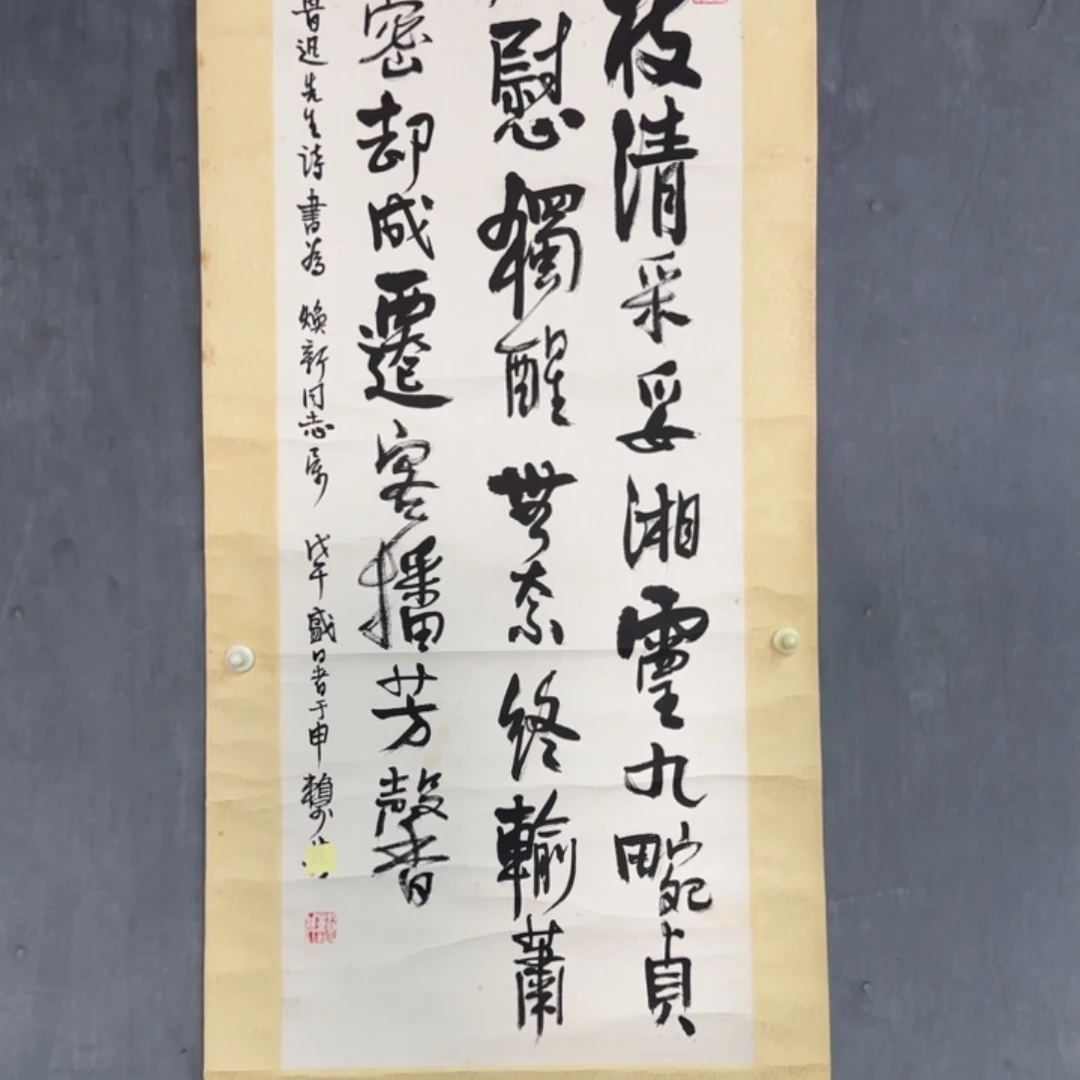 枝清采妥湘靈九畹貞
慰獨醒無奈終輸蕭
密却成遷客播芳馨
魯迅先生詩書為 煥新同志属 戊午盛日書于申